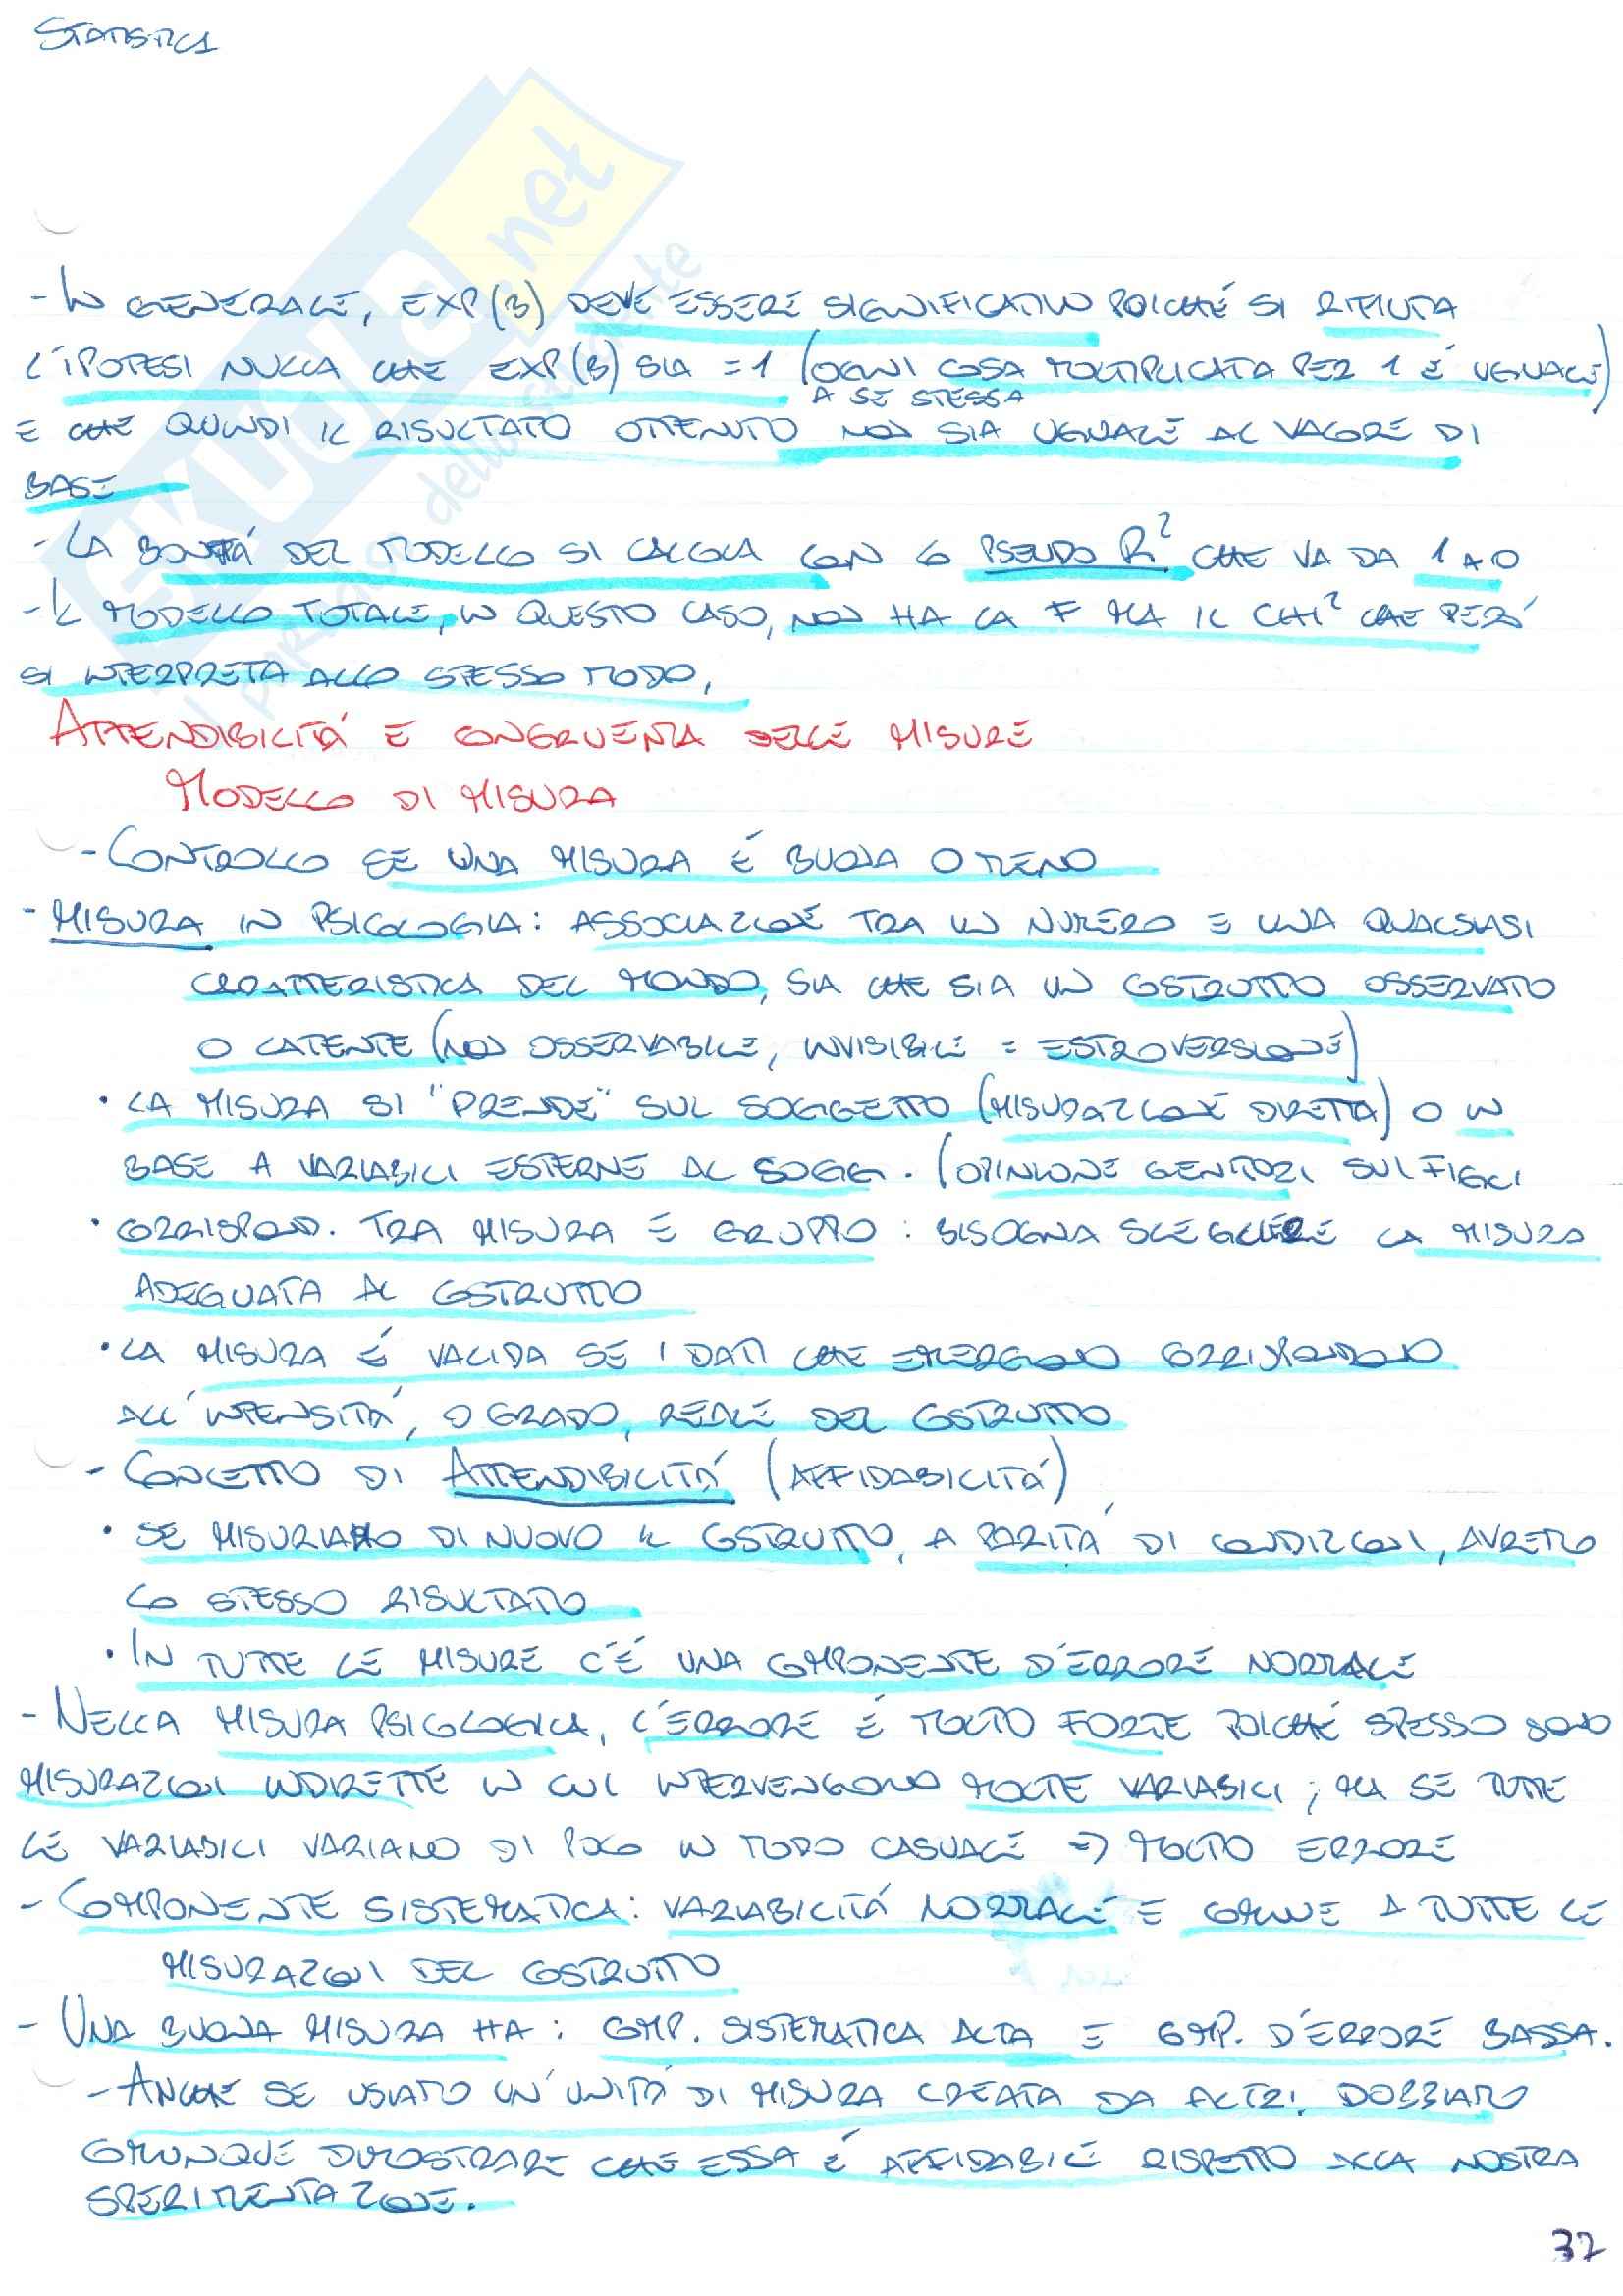 STATISTICA
- IN GENERALE, EXP(B) DEVE ESSERE SIGNIFICATIVO POICHÉ SI RIFIUTA
L'IPOTESI NULLA CHE EXP(B) SIA = 1 (OGNI COSA MOLTIPLICATA PER 1 È UGUALE
A SE STESSA)
E CHE QUINDI IL RISULTATO OTTENUTO NON SIA UGUALE AL VALORE DI
BASE
- LA BONTÀ DEL MODELLO SI CALCOLA CON LO PSEUDO R² CHE VA DA 1 A 0
- IL MODELLO TOTALE, IN QUESTO CASO, NON HA LA F MA IL CHI² CHE PERÒ
SI INTERPRETA ALLO STESSO MODO,
ATTENDIBILITÀ E CONGRUENZA DELLE MISURE
MODELLO DI MISURA
- CONTROLLO SE UNA MISURA È BUONA O MENO
- MISURA IN PSICOLOGIA: ASSOCIAZIONE TRA UN NUMERO E UNA QUALSIASI
CARATTERISTICA DEL MONDO, SIA CHE SIA UN COSTRUTTO OSSERVATO
O LATENTE (NON OSSERVABILE, INVISIBILE = ESTROVERSIONE)
• LA MISURA SI "PRENDE" SUL SOGGETTO (MISURAZIONE DIRETTA) O IN
BASE A VARIABILI ESTERNE AL SOGG. (OPINIONE GENITORI SUI FIGLI
• CORRISPOND. TRA MISURA E GRUPPO: BISOGNA SCEGLIERE LA MISURA
ADEGUATA AL COSTRUTTO
• LA MISURA È VALIDA SE I DATI CHE EMERGONO CORRISPONDONO
ALL'INTENSITÀ, O GRADO, REALE DEL COSTRUTTO
- CONCETTO DI ATTENDIBILITÀ (AFFIDABILITÀ)
• SE MISURIAMO DI NUOVO IL COSTRUTTO, A PARITÀ DI CONDIZIONI, AVREMO
LO STESSO RISULTATO
• IN TUTTE LE MISURE C'È UNA COMPONENTE D'ERRORE NORMALE
- NELLA MISURA PSICOLOGICA, L'ERRORE È MOLTO FORTE POICHÉ SPESSO SONO
MISURAZIONI INDIRETTE IN CUI INTERVENGONO MOLTE VARIABILI; MA SE TUTTE
LE VARIABILI VARIANO DI POCO IN MODO CASUALE => MOLTO ERRORE
- COMPONENTE SISTEMATICA: VARIABILITÀ NORMALE E COMUNE A TUTTE LE
MISURAZIONI DEL COSTRUTTO
- UNA BUONA MISURA HA: COMP. SISTEMATICA ALTA E COMP. D'ERRORE BASSA.
- ANCHE SE USIAMO UN'UNITÀ DI MISURA CREATA DA ALTRI, DOBBIAMO
COMUNQUE DIMOSTRARE CHE ESSA È AFFIDABILE RISPETTO ALLA NOSTRA
SPERIMENTAZIONE.
37